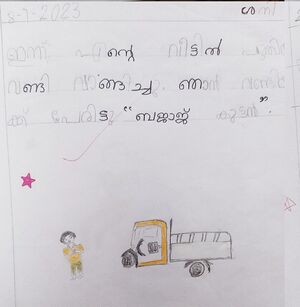 8-7-2023 ശനി
ഇന്ന് എന്റെ വീട്ടിൽ പുതിയ
വണ്ടി വാങ്ങിച്ചു. ഞാൻ വണ്ടി
ക്ക് പേരിട്ടു "ബജാജ് കുട്ടൻ".